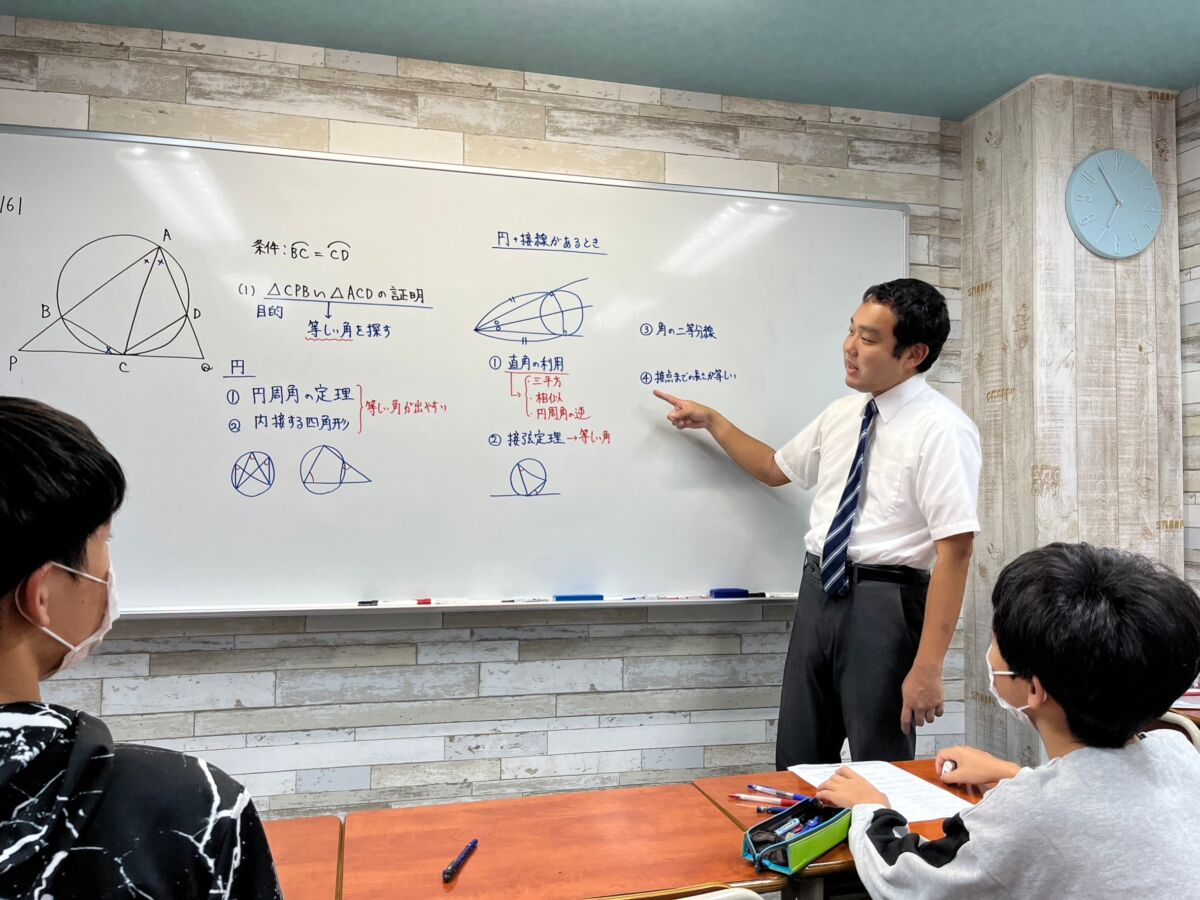 161
A
B
D
P
C
Q
条件: BC = CD
(1) △CPB∽△ACDの証明
目的
等しい角を探す
円
① 円周角の定理
② 内接する四角形
等しい角が出やすい
円+接線があるとき
① 直角の利用
・三平方
・相似
・円周角の逆
② 接弦定理→等しい角
③ 角の二等分線
④ 接点までの長さが等しい
SMAPPY